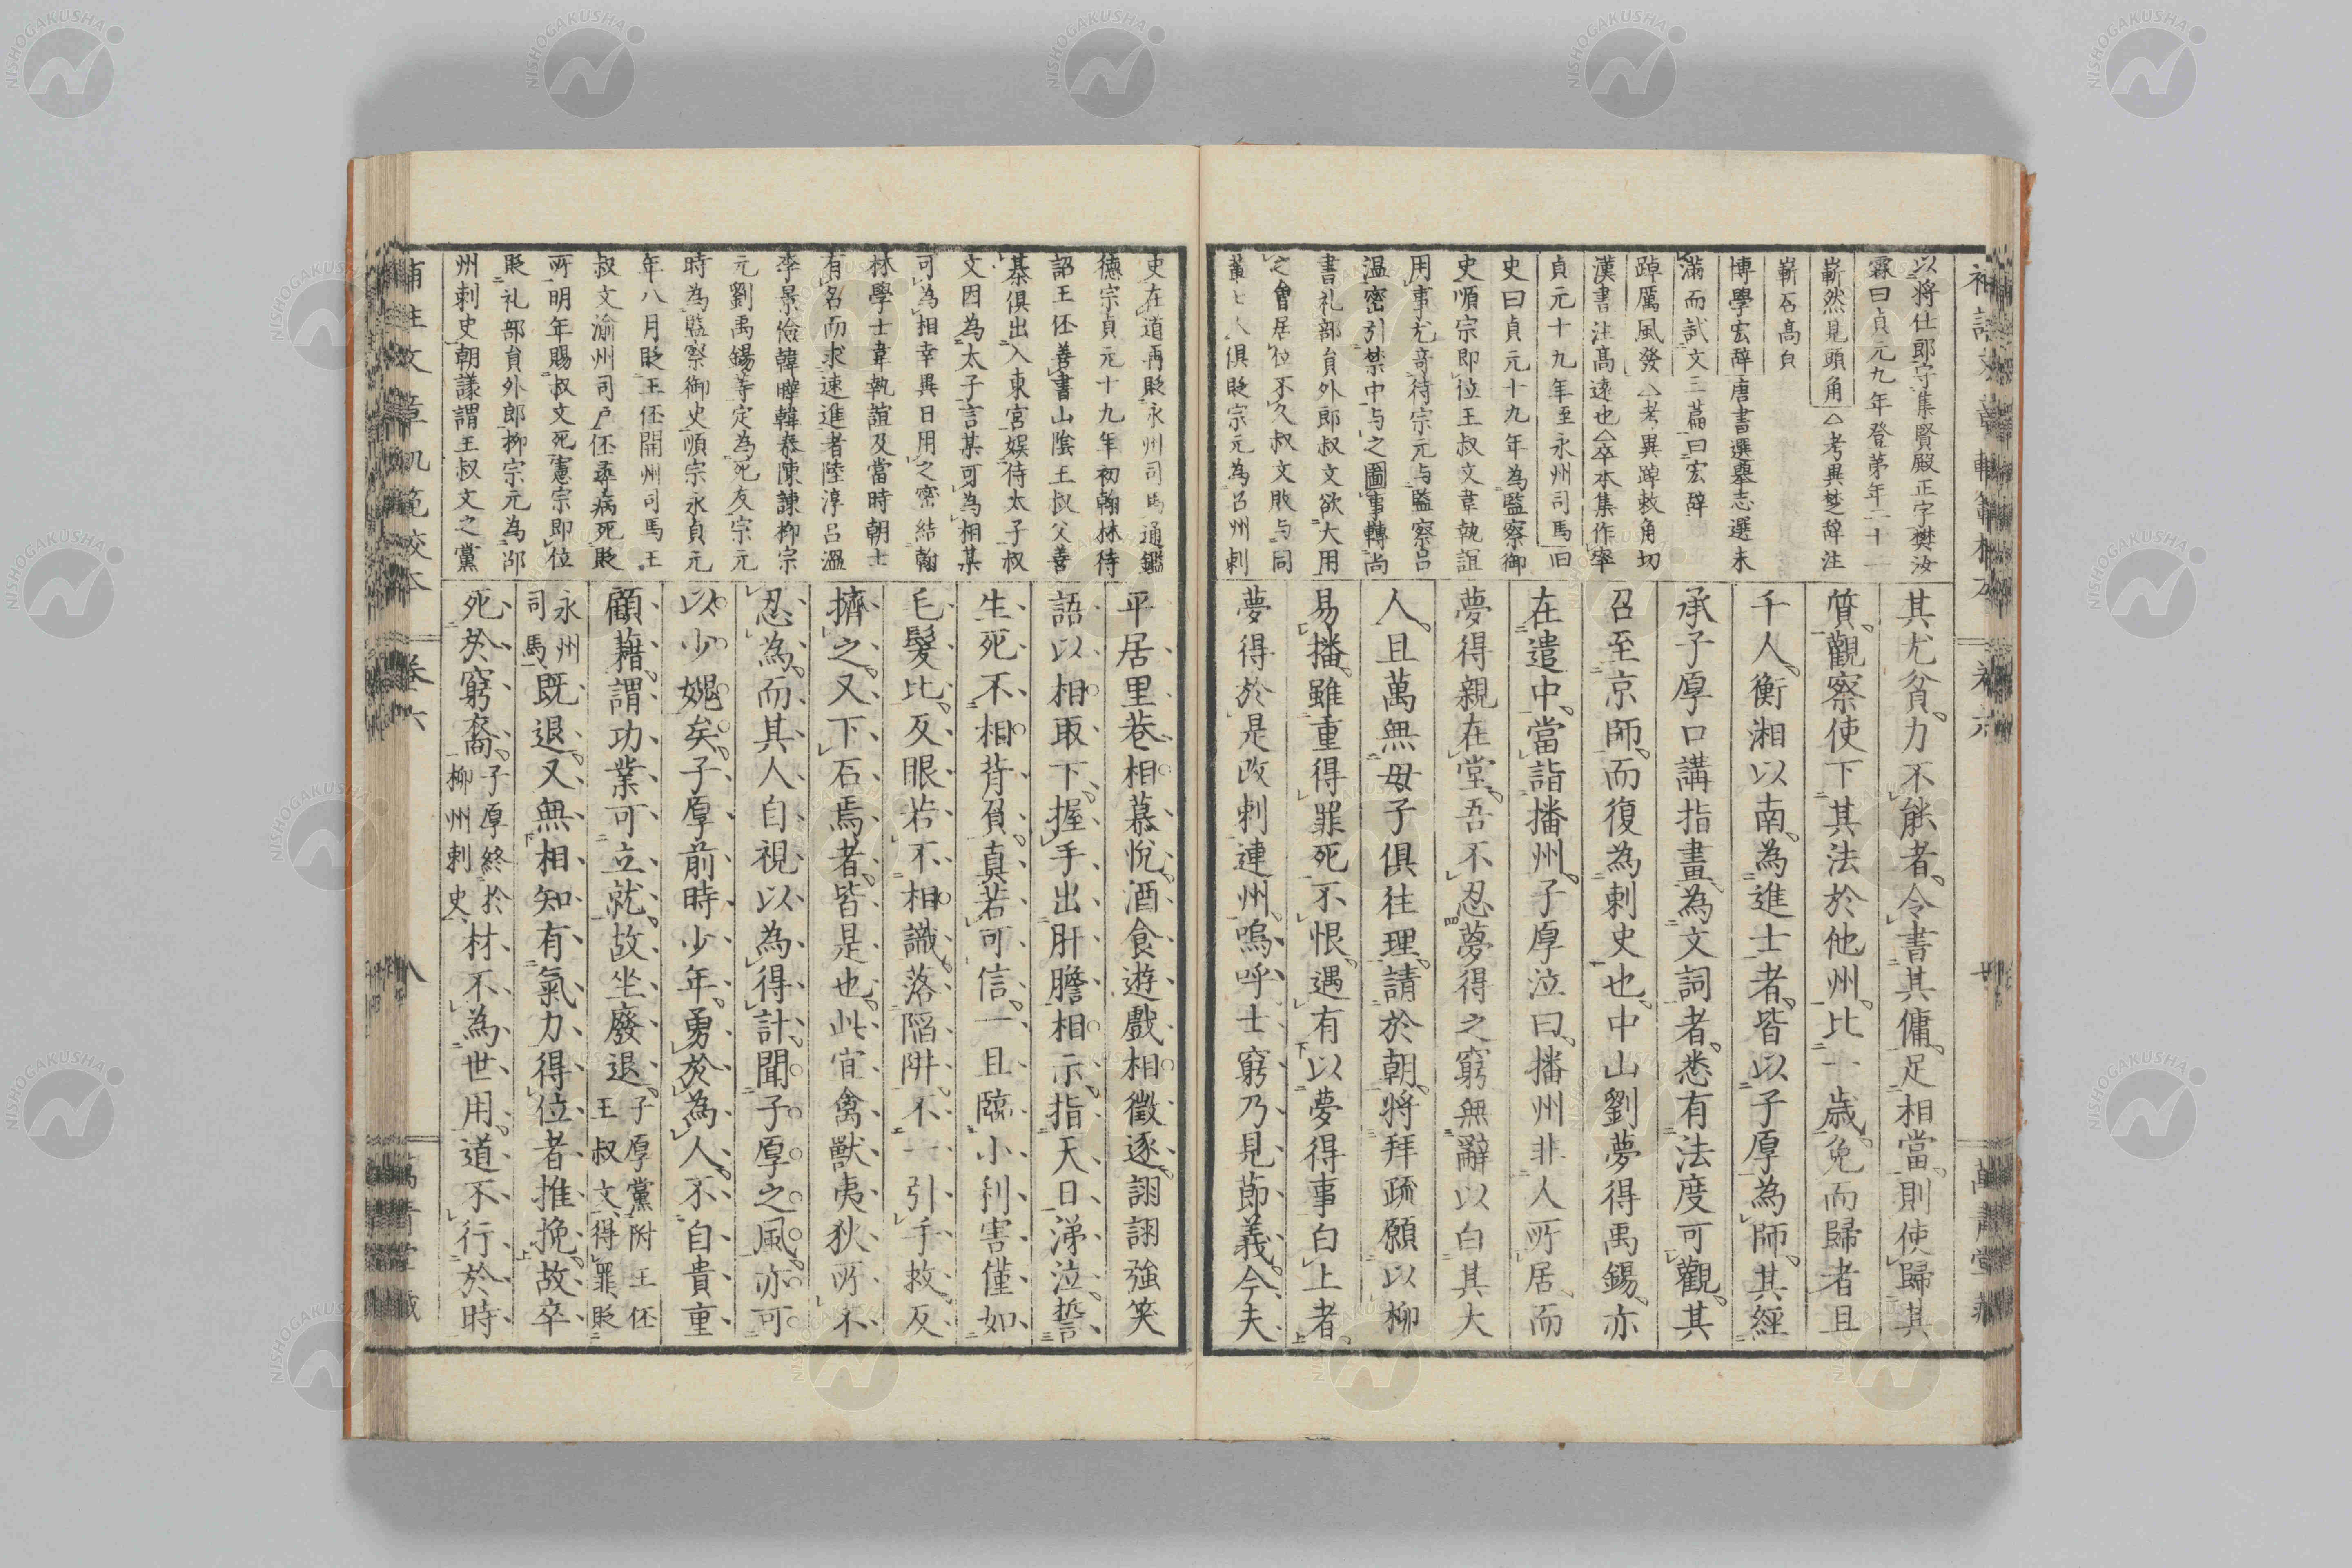 補註文章軌範校本 卷六
以将仕郎守集賢殿正字樊汝
霖曰貞元九年登第年二十一
嶄然見頭角△考異楚辞注
嶄石高皃
博學宏辞唐書選舉志選未
滿而試文三篇曰宏辞
踔厲風發△考異踔敕角切
漢書注高遠也△卒本集作率
貞元十九年至永州司馬旧
史曰貞元十九年為監察御
史順宗即位王叔文韋執誼
用事尤奇待宗元与監察呂
温密引禁中与之圖事轉尚
書礼部員外郎叔文欲大用
之會居位不久叔文敗与同
黨七人俱貶宗元為呂州刺
其尤貧力不能者令書其傭足相當則使歸其
質觀察使下其法於他州比一歳免而歸者且
千人衡湘以南為進士者皆以子厚為師其經
承子厚口講指畫為文詞者悉有法度可觀其
召至京師而復為刺史也中山劉夢得禹錫亦
在遣中當詣播州子厚泣曰播州非人所居而
夢得親在堂吾不忍夢得之窮無辭以白其大
人且萬無母子俱往理請於朝將拜疏願以柳
易播雖重得罪死不恨遇有以夢得事白上者
夢得於是改刺連州嗚呼士窮乃見節義今夫
史在道再貶永州司馬通鑑
德宗貞元十九年初翰林待
詔王伾善書山陰王叔父善
棊俱出入東宮娯侍太子叔
文因為太子言某可為相某
可為相幸異日用之密結翰
林學士韋執誼及當時朝士
有名而求速進者陸淳呂温
李景儉韓曄韓泰陳諫柳宗
元劉禹錫等定為死友宗元
時為監察御史順宗永貞元
年八月貶王伾開州司馬王
叔文渝州司戸伾尋病死貶
所明年賜叔文死憲宗即位
貶礼部員外郎柳宗元為邵
州刺史朝議謂王叔文之黨
平居里巷相慕悅酒食遊戲相徵逐詡詡強笑
語以相取下握手出肝膽相示指天日涕泣誓
生死不相背負真若可信一旦臨小利害僅如
毛髮比反眼若不相識落陷阱不一引手救反
擠之又下石焉者皆是也此宜禽獸夷狄所不
忍為而其人自視以為得計聞子厚之風亦可
以少媿矣子厚前時少年勇於為人不自貴重
顧藉謂功業可立就故坐廢退子厚黨附王伾王叔文得罪貶
永州司馬既退又無相知有氣力得位者推挽故卒
死於窮裔子厚終於柳州刺史材不為世用道不行於時
補註文章軌範校本 卷六 八 萬青堂藏
NISHOGAKUSHA